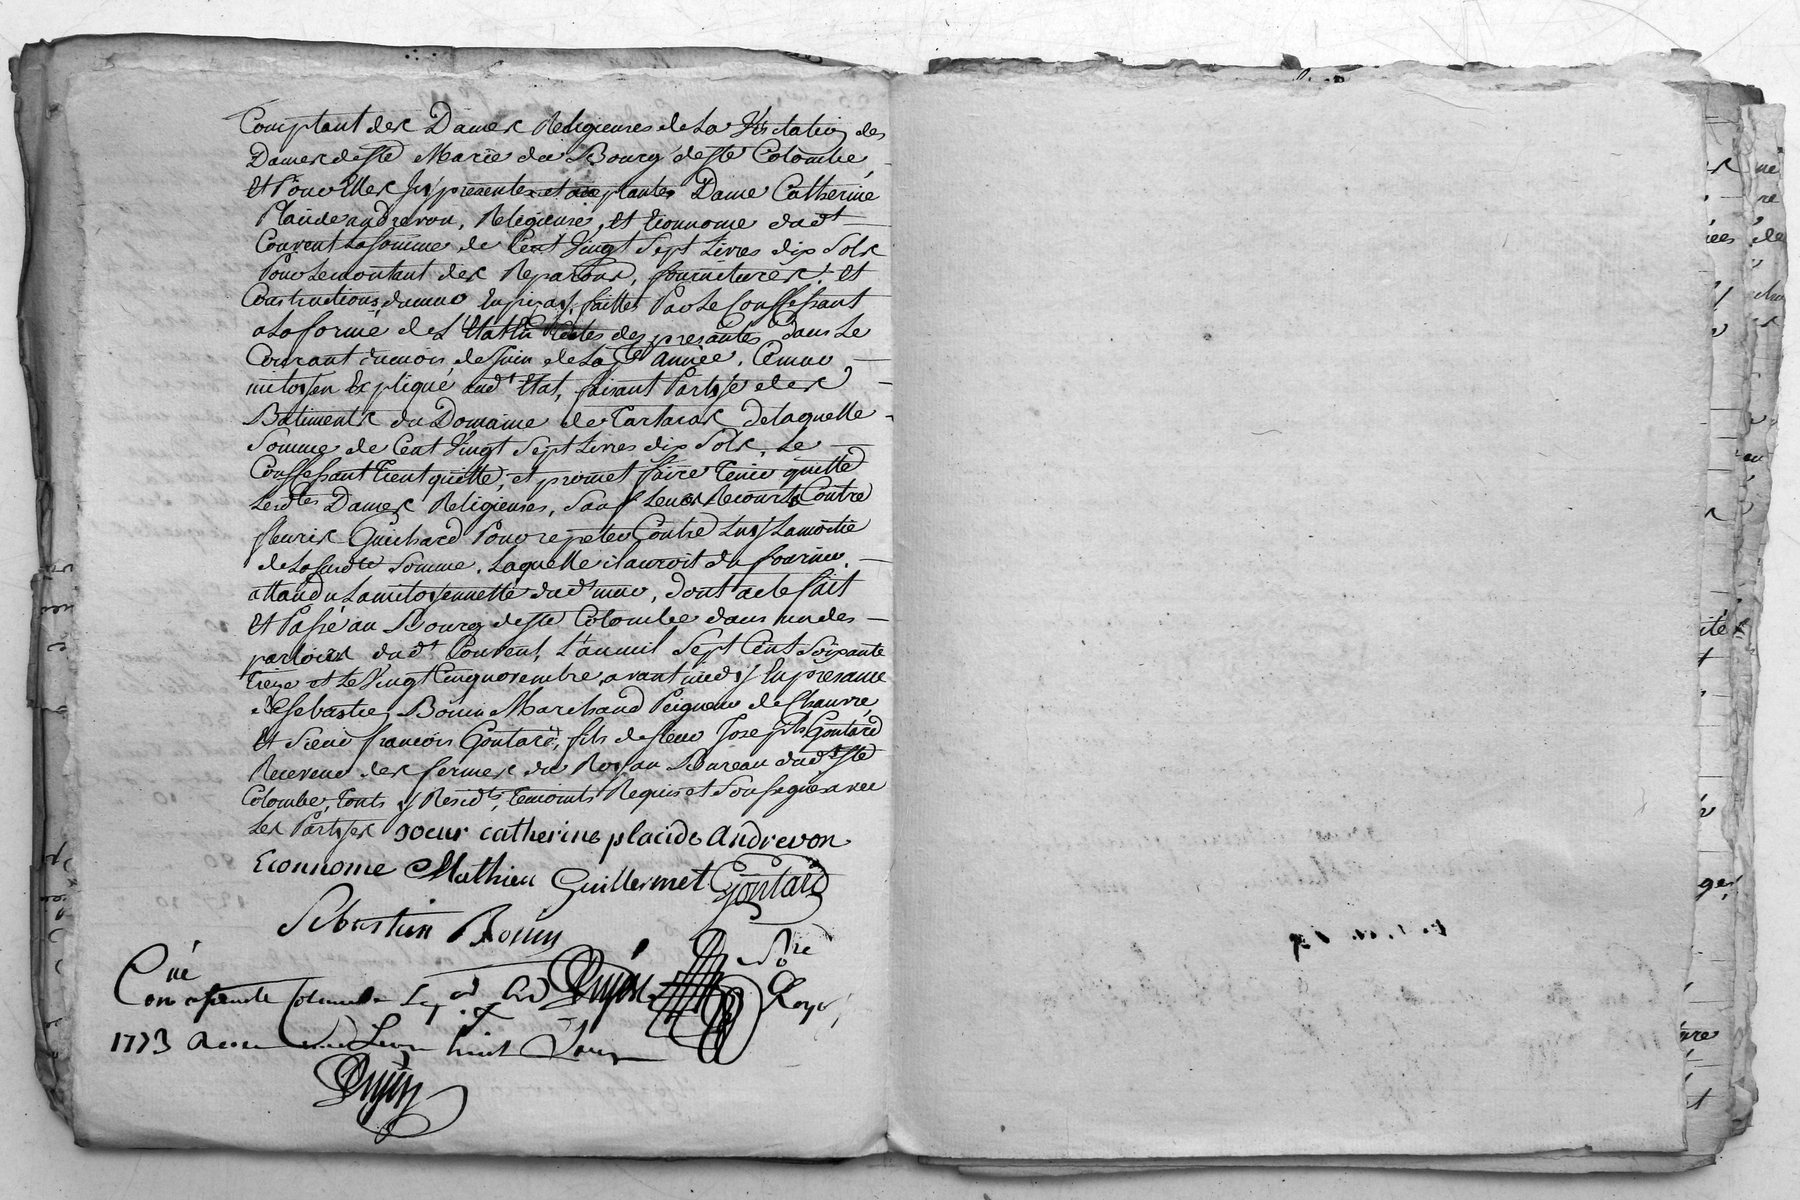 Comptant des Dames Religieuses de La Visitation des
Dames de Ste Marie du Bourg de Ste Colombe
Et Pour Elles Icy presente et acceptante Dame Catherine
Placide andrevon, Religieuse, et Econnome dudt
Couvent La somme de Cent Vingt Sept Livres dix Sols
Pour Le montant des Reparaons, fournitures, Et
Constructions, du mur faittes Par Le Confessant
a La forme de L'Etat des presantes dans Le
Courant du mois de Juin de La pte année, Ce mur
mitoyen Expliqué audt Etat, faisant Partye des
Batiments du Domaine de Tartaras de laquelle
Somme de Cent Vingt Sept Livres dix Sols, Le
Confessant tient quitte, et promet faire tenir quitte
Lesdtes Dames Religieuses, Sauf Leurs Recours Contre
fleuris Guichard Pour repeter Contre Luy La moitié
de La susdte Somme, Laquelle il auroit du fournir,
attandu La mitoyennette dudt mur, dont acte fait
Et Passé au Bourg de Ste Colombe dans un des
parloirs dudt Couvent, L'an mil Sept Cent Soixante
treize et Le Vingt Cinq novembre, avant midy En presance
de Sebastien Bonin Marchand Peigneur de Chanvre,
Et Sieur françois Goutard, fils de sieur Joseph Goutard
Receveur des fermes du Roy au Bureau dudt Ste
Colombe, touts y Residts, temoints Requis et Soussignes avec
Les Partyes soeur catherine placide Andrevon
Econnome Mathieu Guillermet Goutard
Sebastien Bonin
Dujon Nore Royal
Conné a Sainte Colombe Le
1773 Recu huit Sous
Dujon